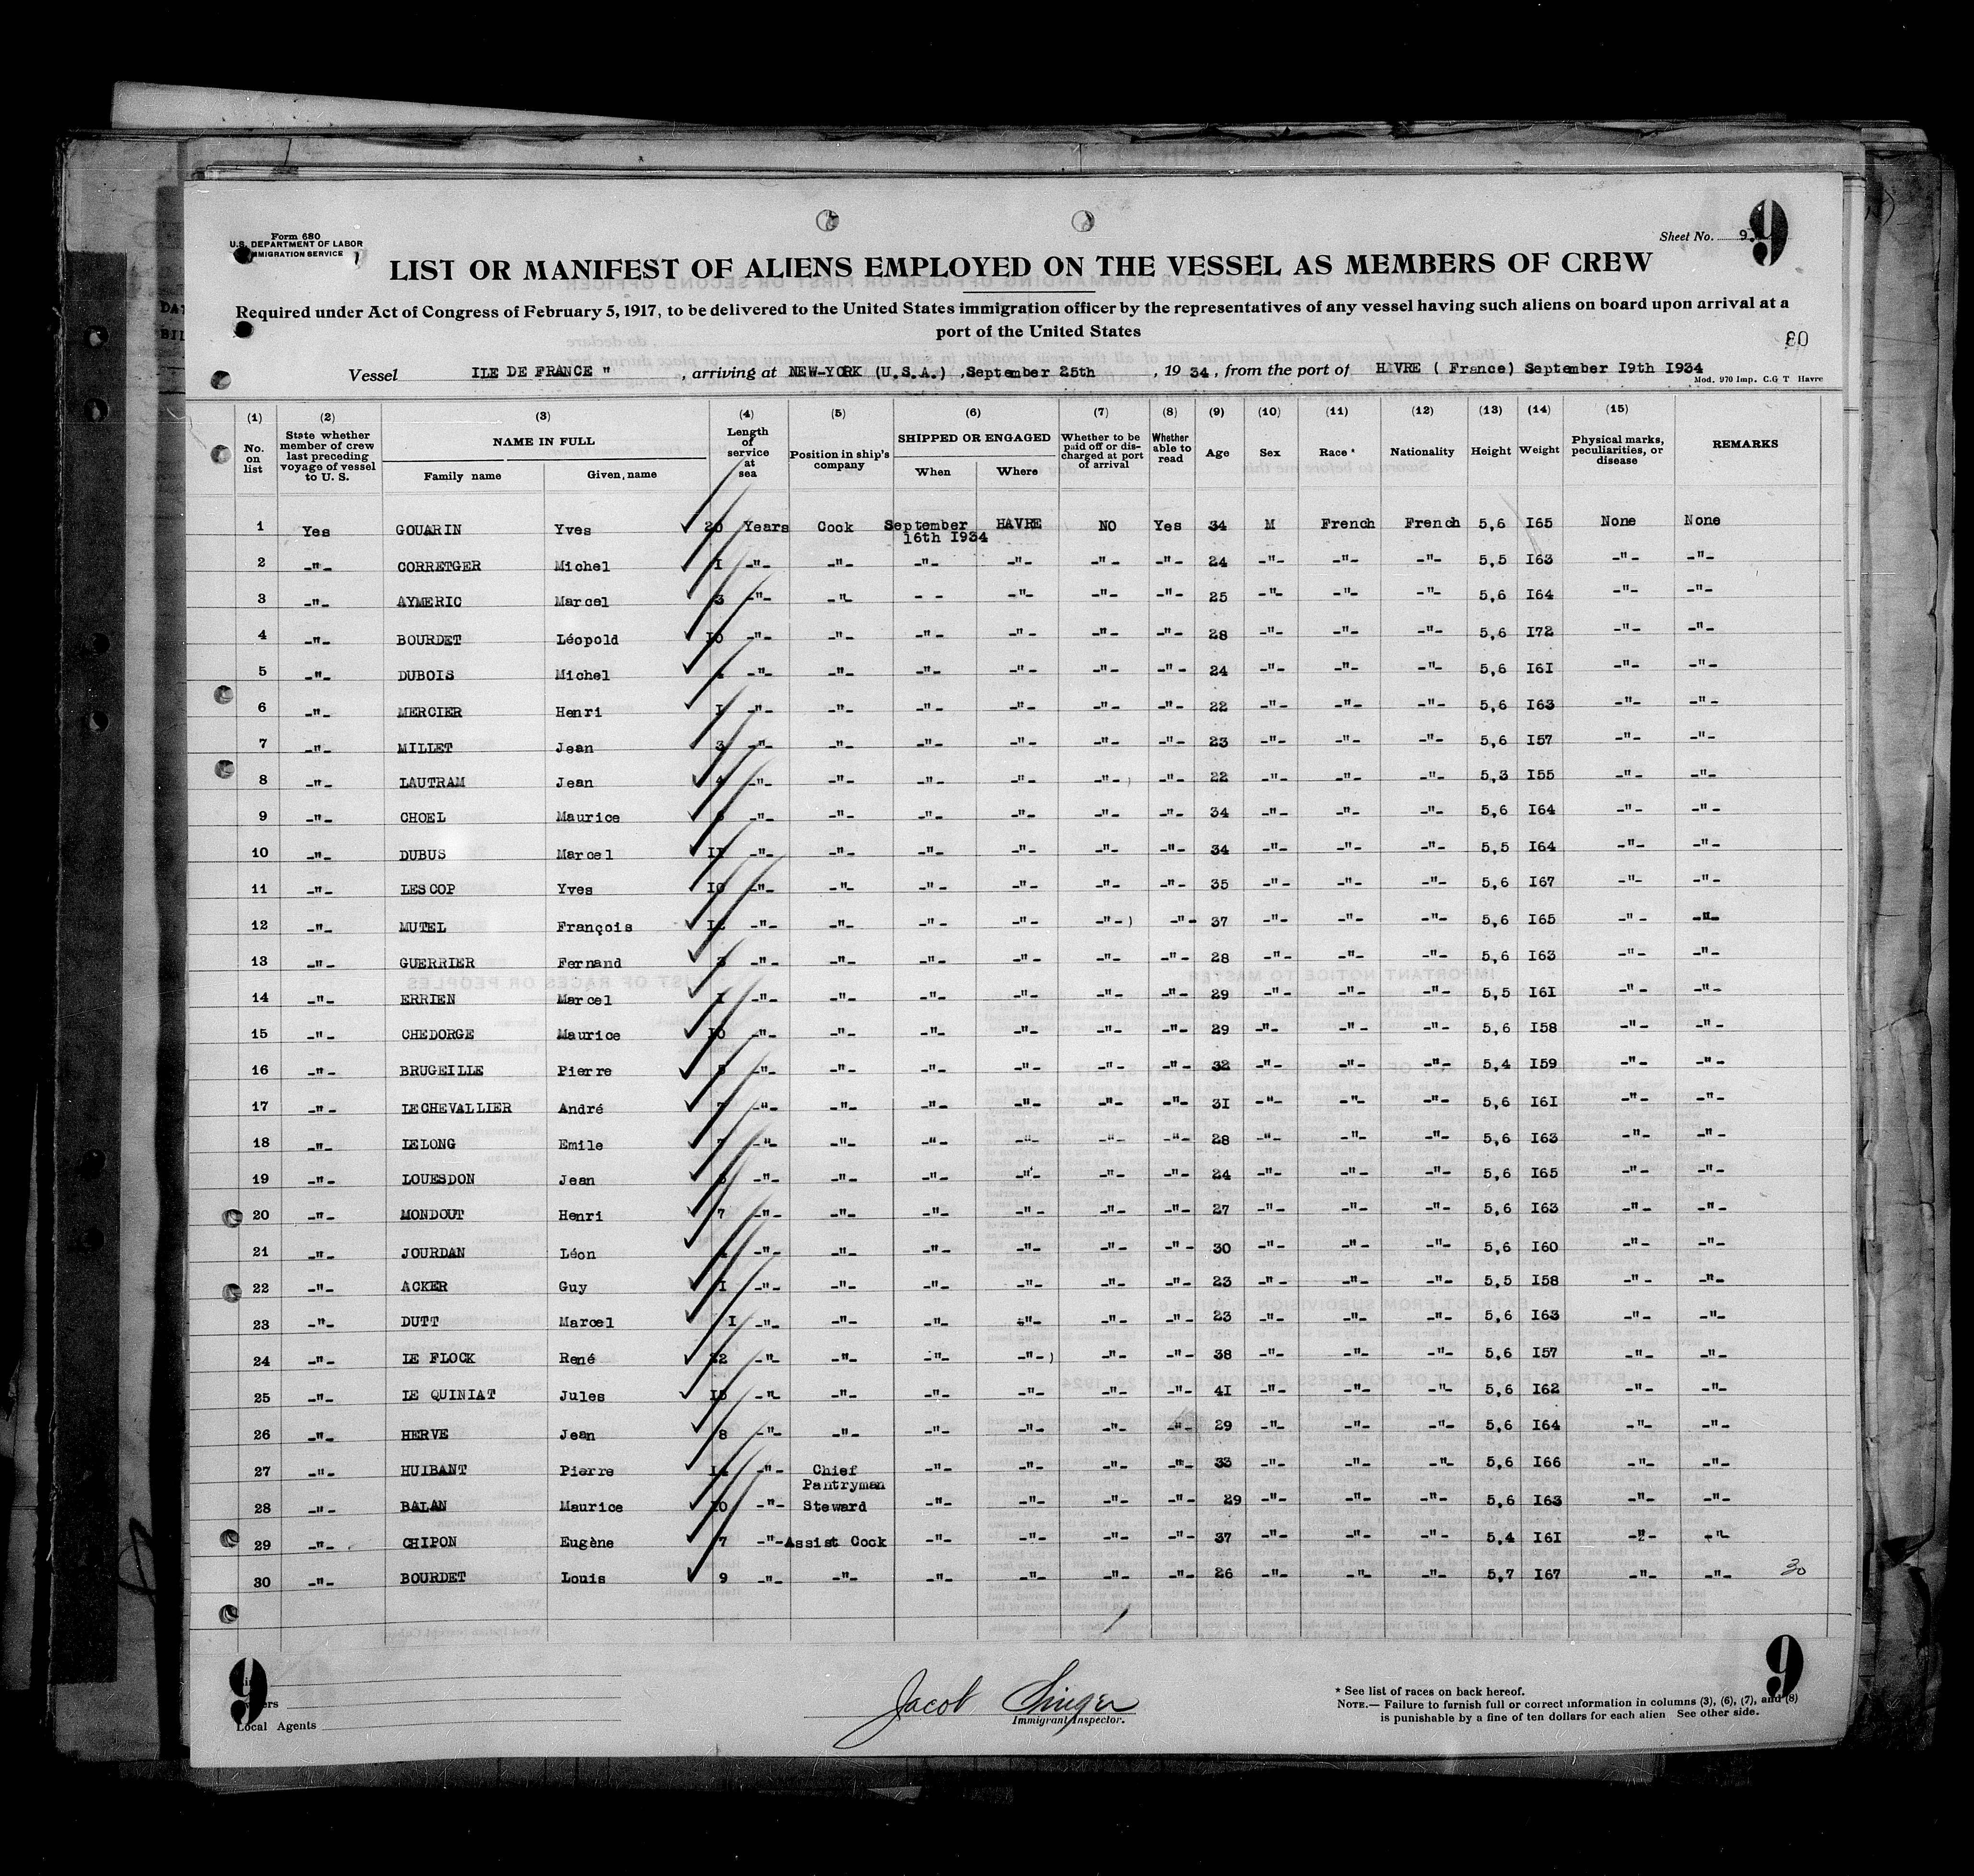 Form 680
U.S. DEPARTMENT OF LABOR
IMMIGRATION SERVICE
Sheet No. 9.
9
LIST OR MANIFEST OF ALIENS EMPLOYED ON THE VESSEL AS MEMBERS OF CREW
Required under Act of Congress of February 5, 1917, to be delivered to the United States immigration officer by the representatives of any vessel having such aliens on board upon arrival at a
port of the United States
80
Vessel ILE DE FRANCE " , arriving at NEW-YORK (U.S.A.) ,September 25th , 19 34 , from the port of HAVRE ( France) September I9th I934
Mod. 970 Imp. C.G T Havre
(1) (2) (3) (4) (5) (6) (7) (8) (9) (10) (11) (12) (13) (14) (15)
No. on list State whether member of crew last preceding voyage of vessel to U. S. NAME IN FULL Family name Given name Length of service at sea Position in ship's company SHIPPED OR ENGAGED When Where Whether to be paid off or discharged at port of arrival Whether able to read Age Sex Race * Nationality Height Weight Physical marks, peculiarities, or disease REMARKS
1 Yes GOUARIN Yves 20 Years Cook September 16th I934 HAVRE NO Yes 34 M French French 5,6 I65 None None
2 -"- CORRETGER Michel I -"- -"- -"- -"- -"- -"- 24 -"- -"- -"- 5,5 I63 -"- -"-
3 -"- AYMERIC Marcel 3 -"- -"- - - -"- -"- -"- 25 -"- -"- -"- 5,6 I64 -"- -"-
4 -"- BOURDET Léopold I0 -"- -"- -"- -"- -"- -"- 28 -"- -"- -"- 5,6 I72 -"- -"-
5 -"- DUBOIS Michel -"- -"- -"- -"- -"- -"- 24 -"- -"- -"- 5,6 I6I -"- -"-
6 -"- MERCIER Henri I -"- -"- -"- -"- -"- -"- 22 -"- -"- -"- 5,6 I63 -"- -"-
7 -"- MILLET Jean 3 -"- -"- -"- -"- -"- -"- 23 -"- -"- -"- 5,6 I57 -"- -"-
8 -"- LAUTRAM Jean 4 -"- -"- -"- -"- -"- -"- 22 -"- -"- -"- 5,3 I55 -"- -"-
9 -"- CHOEL Maurice -"- -"- -"- -"- -"- -"- 34 -"- -"- -"- 5,6 I64 -"- -"-
10 -"- DUBUS Marcel II -"- -"- -"- -"- -"- -"- 34 -"- -"- -"- 5,5 I64 -"- -"-
11 -"- LESCOP Yves I0 -"- -"- -"- -"- -"- -"- 35 -"- -"- -"- 5,6 I67 -"- -"-
12 -"- MUTEL François I2 -"- -"- -"- -"- -"- -"- 37 -"- -"- -"- 5,6 I65 -"- -"-
13 -"- GUERRIER Fernand 3 -"- -"- -"- -"- -"- -"- 28 -"- -"- -"- 5,6 I63 -"- -"-
14 -"- ERRIEN Marcel I -"- -"- -"- -"- -"- -"- 29 -"- -"- -"- 5,5 I6I -"- -"-
15 -"- CHEDORGE Maurice I0 -"- -"- -"- -"- -"- -"- 29 -"- -"- -"- 5,6 I58 -"- -"-
16 -"- BRUGEILLE Pierre -"- -"- -"- -"- -"- -"- 32 -"- -"- -"- 5,4 I59 -"- -"-
17 -"- LECHEVALLIER André 7 -"- -"- -"- -"- -"- -"- 3I -"- -"- -"- 5,6 I6I -"- -"-
18 -"- LELONG Emile 7 -"- -"- -"- -"- -"- -"- 28 -"- -"- -"- 5,6 I63 -"- -"-
19 -"- LOUESDON Jean -"- -"- -"- -"- -"- -"- 24 -"- -"- -"- 5,6 I65 -"- -"-
20 -"- MONDOUT Henri 7 -"- -"- -"- -"- -"- -"- 27 -"- -"- -"- 5,6 I63 -"- -"-
21 -"- JOURDAN Léon -"- -"- -"- -"- -"- -"- 30 -"- -"- -"- 5,6 I60 -"- -"-
22 -"- ACKER Guy I -"- -"- -"- -"- -"- -"- 23 -"- -"- -"- 5,5 I58 -"- -"-
23 -"- DUTT Marcel I -"- -"- -"- -"- -"- -"- 23 -"- -"- -"- 5,6 I63 -"- -"-
24 -"- LE FLOCK René 22 -"- -"- -"- -"- -"- -"- 38 -"- -"- -"- 5,6 I57 -"- -"-
25 -"- LE QUINIAT Jules I5 -"- -"- -"- -"- -"- -"- 4I -"- -"- -"- 5,6 I62 -"- -"-
26 -"- HERVE Jean 8 -"- -"- -"- -"- -"- -"- 29 -"- -"- -"- 5,6 I64 -"- -"-
27 -"- HUIBANT Pierre -"- Chief Pantryman -"- -"- -"- -"- 33 -"- -"- -"- 5,6 I66 -"- -"-
28 -"- BALAN Maurice 20 -"- Steward -"- -"- -"- -"- 29 -"- -"- -"- 5,6 I63 -"- -"-
29 -"- CHIPON Eugène 7 -"- Assist Cook -"- -"- -"- -"- 37 -"- -"- -"- 5,4 I6I -"- -"-
30 -"- BOURDET Louis 9 -"- -"- -"- -"- -"- -"- 26 -"- -"- -"- 5,7 I67 -"- -"- 30
9
Local Agents
Jacob Singer
Immigrant Inspector.
* See list of races on back hereof.
NOTE.— Failure to furnish full or correct information in columns (3), (6), (7), and (8)
is punishable by a fine of ten dollars for each alien See other side.
9